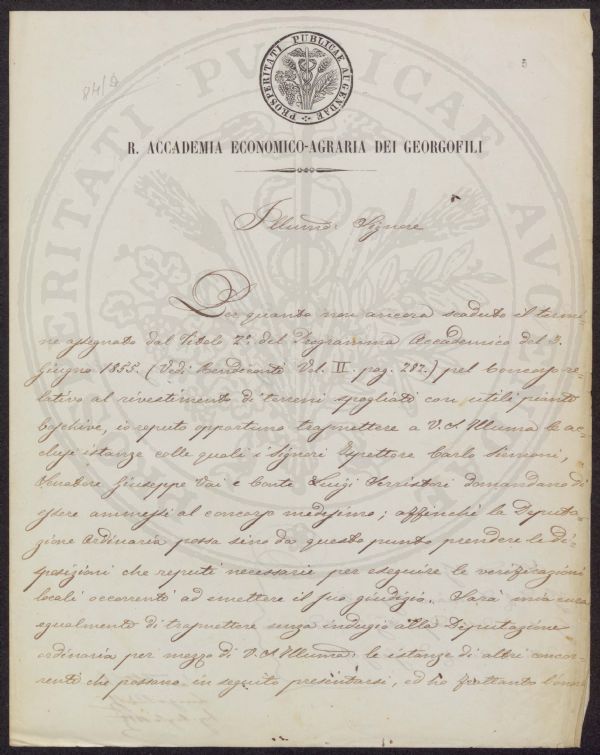 84/D
PROSPERITATI PUBLICAE AUGENDAE
R. ACCADEMIA ECONOMICO-AGRARIA DEI GEORGOFILI
Illumo: Signore
Per quanto non ancora scaduto il termi-
ne assegnato dal Titolo 2º. del Programma Accademico del 3.
Giugno 1855. (Vedi Rendiconti Vol. II. pag. 287.) pel Concorso re-
lativo al rivestimento di terreni spogliati con utili piante
boschive, io reputo opportuno trasmettere a V.S. Illuma: le ac-
cluse istanze colle quali i Signori Ispettore Carlo Siemoni,
Senatore Giuseppe Vai e Conte Luigi Serristori domandano di
essere ammessi al concorso medesimo; affinchè la Deputa-
zione ordinaria possa sino da questo punto prendere le di-
sposizioni che reputi necessarie per eseguire le verificazioni
locali occorrenti ad emettere il suo giudizio. Sarà mia cura
egualmente di trasmettere senza indugio alla Deputazione
ordinaria per mezzo di V.S. Illuma: le istanze di altri concor-
renti che possano in seguito presentarsi, ed ho frattanto l'onore